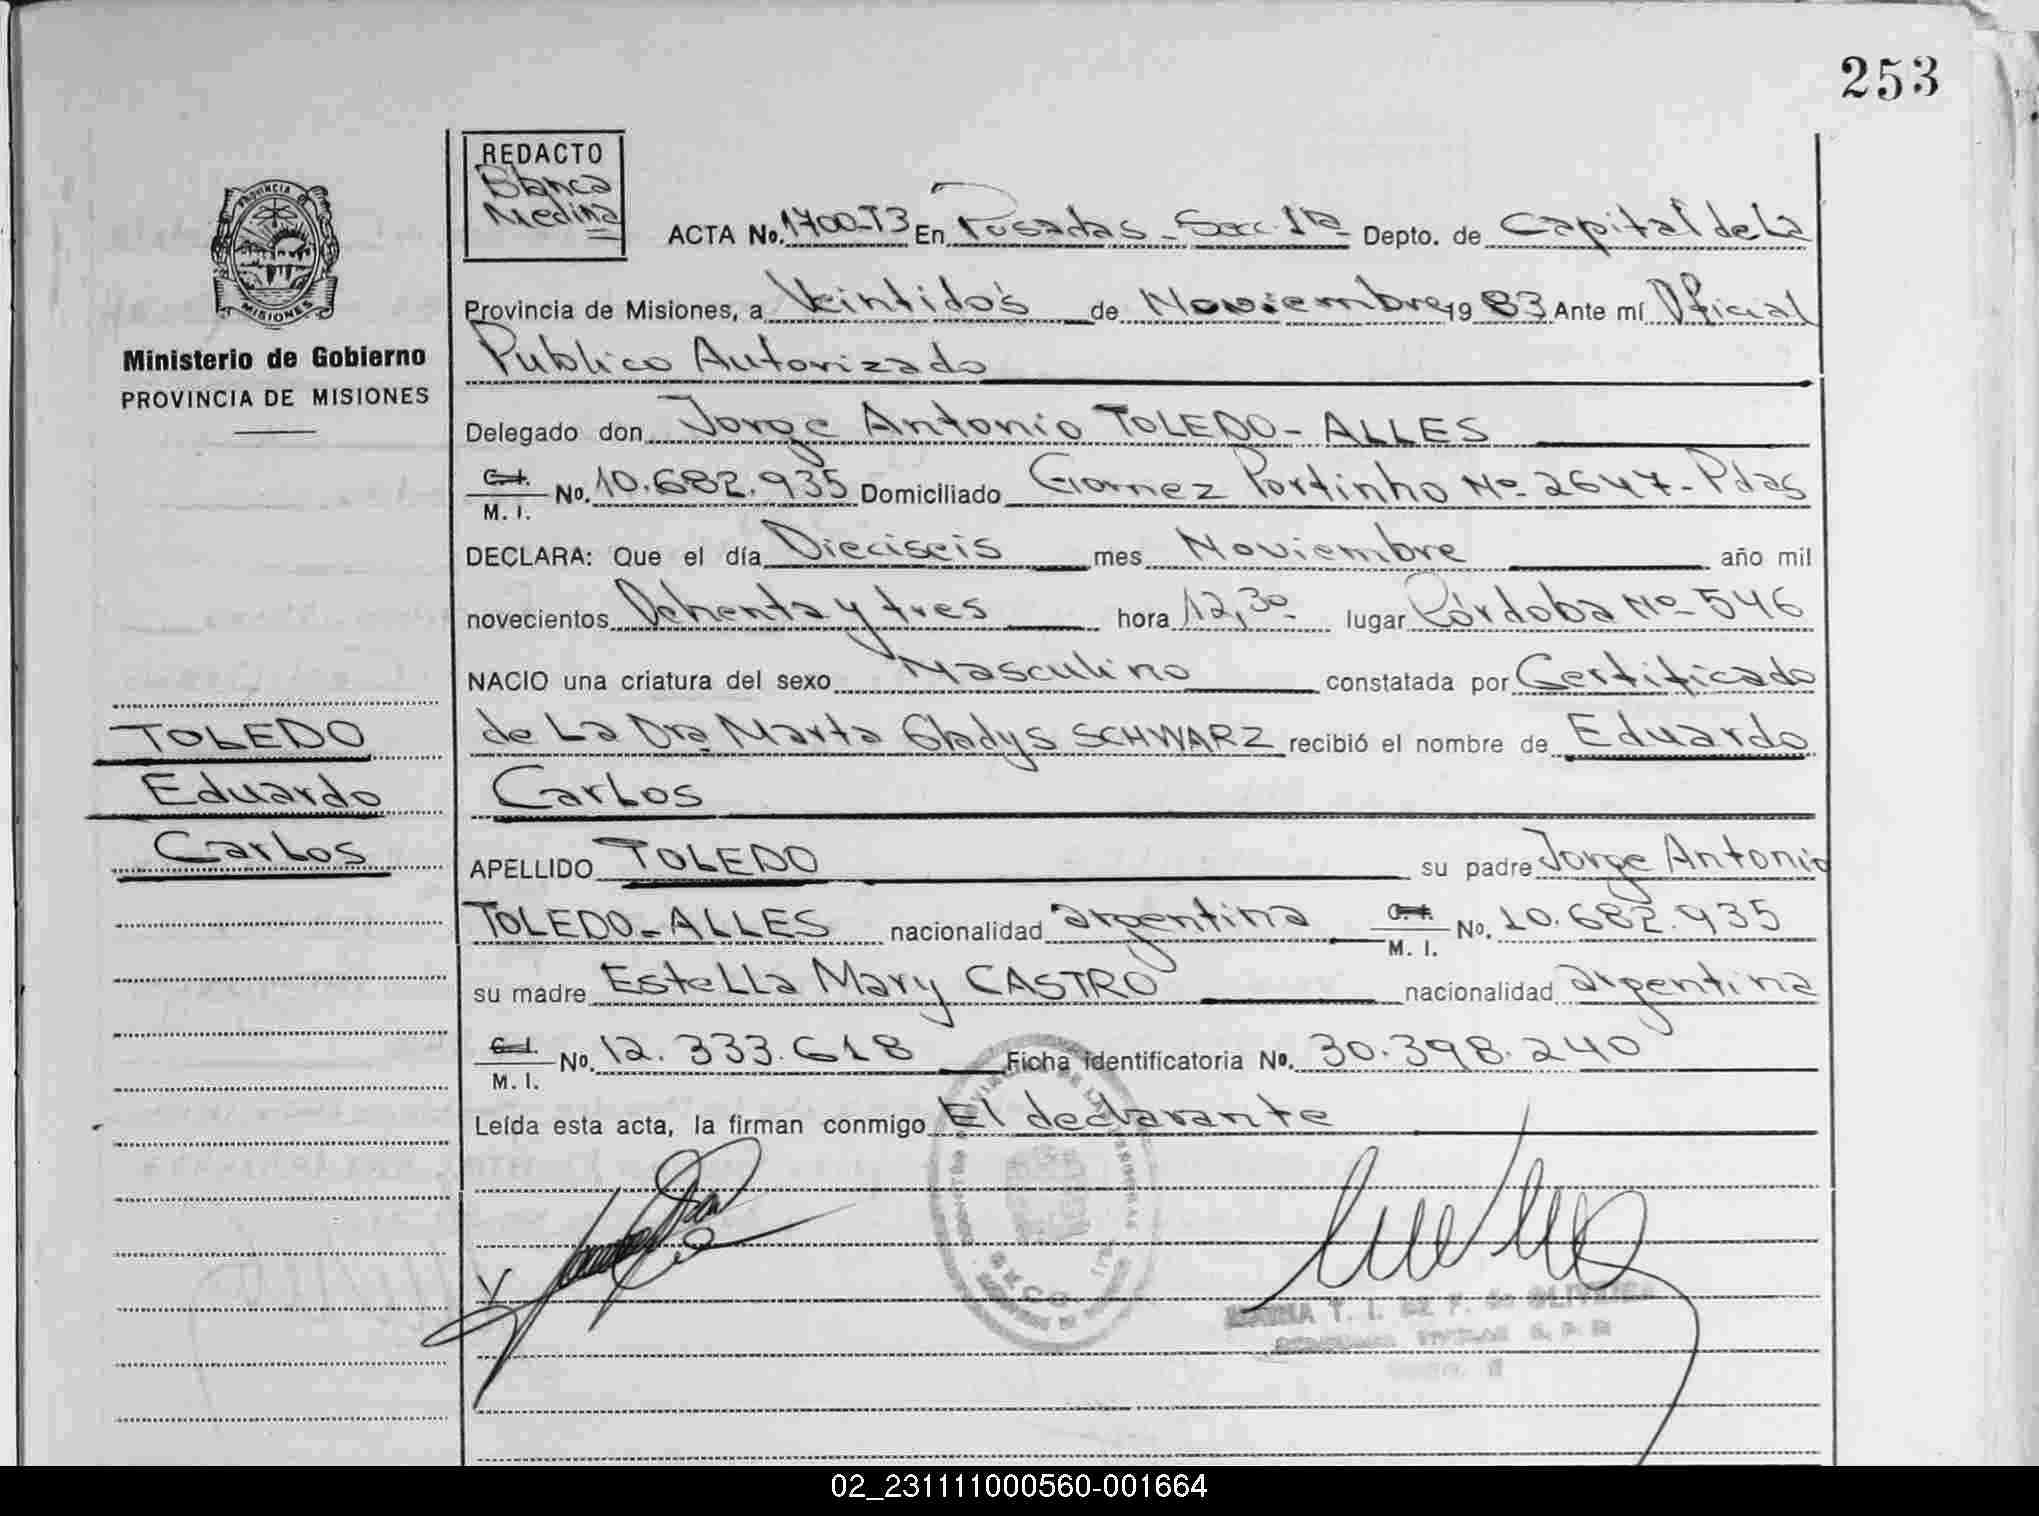 253
REDACTO
Blanca
Medina
PROVINCIA
MISIONES
Ministerio de Gobierno
PROVINCIA DE MISIONES
ACTA No. 1700-T3 En Posadas - Secc. 1ra Depto. de Capital de La
Provincia de Misiones, a Veintidós de Noviembre 19 83 Ante mí Oficial
Publico Autorizado
Delegado don Jorge Antonio TOLEDO-ALLES
C.I. M. I. No. 10.682.935 Domiciliado Gomez Portinho No 2647- Pdas
DECLARA: Que el día Dieciseis mes Noviembre año mil
novecientos Ochenta y tres hora 12,30 lugar Córdoba No 546
NACIO una criatura del sexo Masculino constatada por Certificado
de La Dra Marta Gladys SCHWARZ recibió el nombre de Eduardo
Carlos
TOLEDO
Eduardo
Carlos
APELLIDO TOLEDO su padre Jorge Antonio
TOLEDO-ALLES nacionalidad argentina C.I. M. I. No. 10.682.935
su madre Estella Mary CASTRO nacionalidad argentina
C.I. M. I. No. 12.333.618 Ficha identificatoria No. 30.398.240
Leída esta acta, la firman conmigo El declarante
T. I. DE F. de
02_231111000560-001664